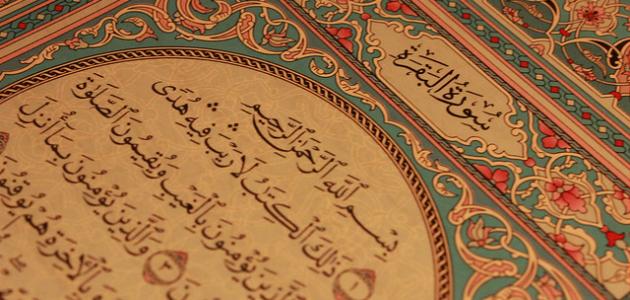 سُورَةُ الْبَقَرَةِ
بِسْمِ اللَّهِ الرَّحْمَٰنِ الرَّحِيمِ
١ ذَٰلِكَ الْكِتَابُ لَا رَيْبَ فِيهِ هُدًى
الَّذِينَ يُؤْمِنُونَ بِالْغَيْبِ وَيُقِيمُونَ الصَّلَاةَ
٣ وَالَّذِينَ يُؤْمِنُونَ بِمَا أُنزِلَ
وَبِالْآخِرَةِ هُمْ يُوقِنُونَ